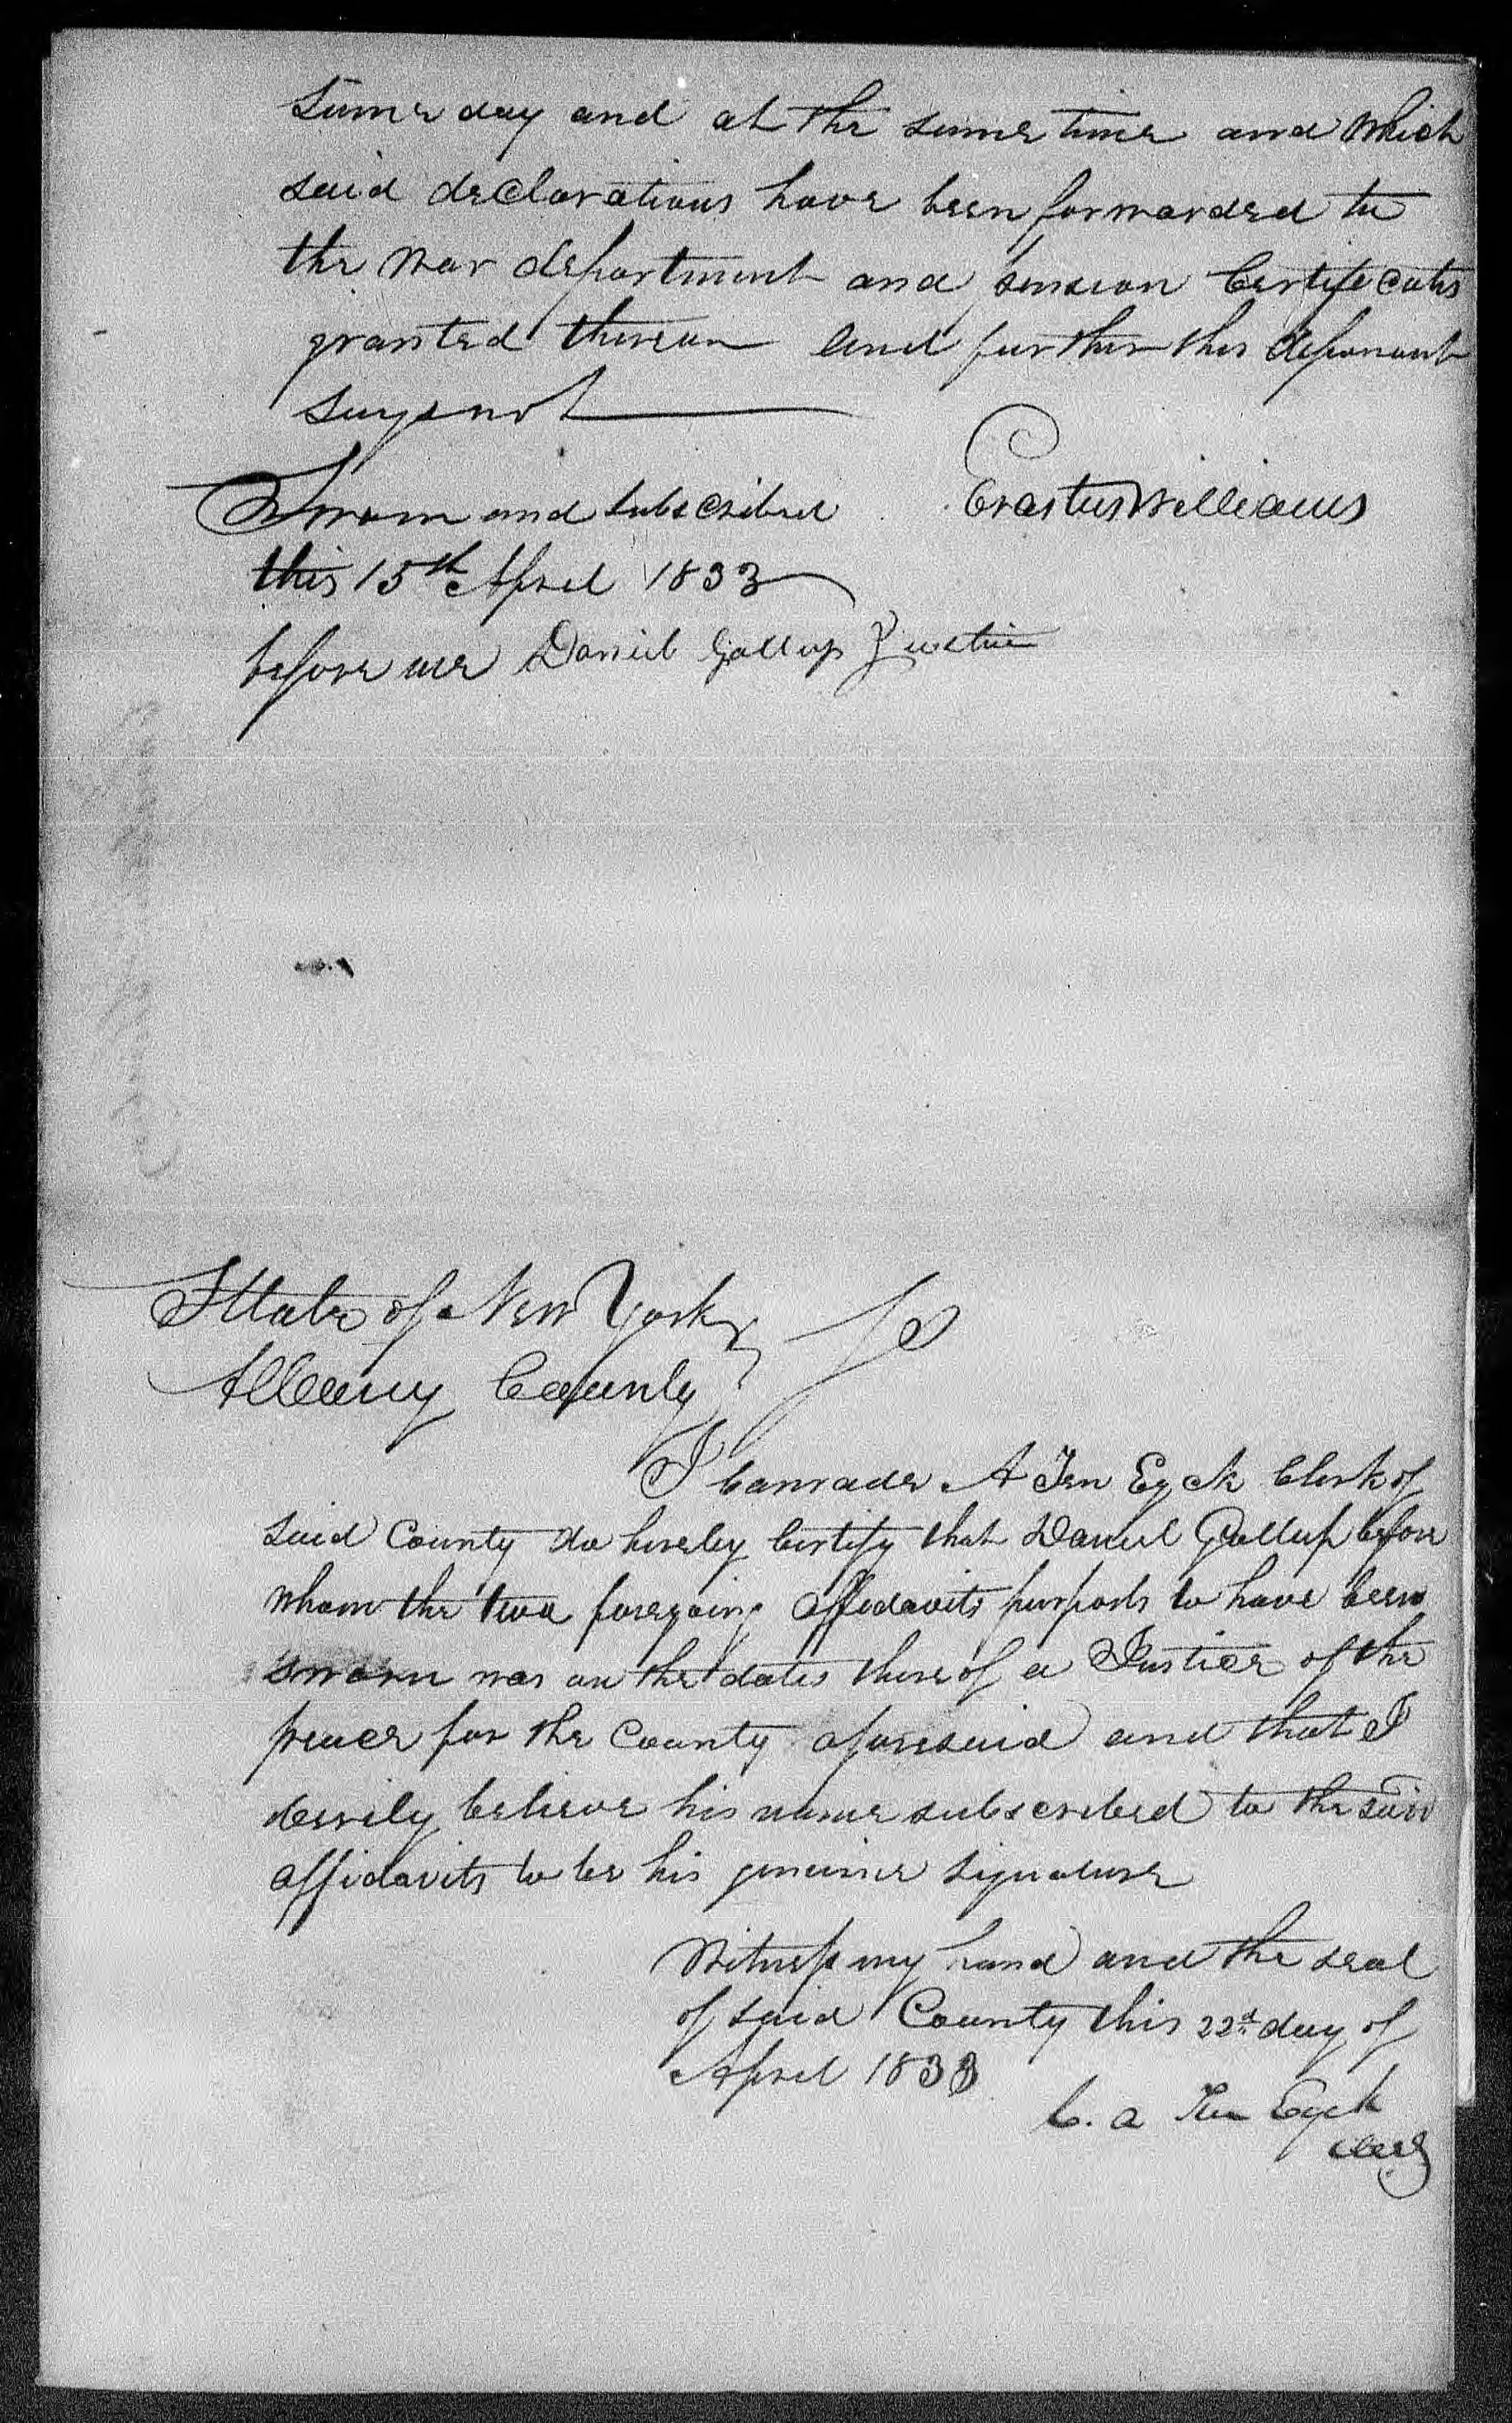 same day and at the same time and which
said declarations have been forwarded to
the war department and pension Certificates
granted thereon and further this deponent
says not
Sworn and subscribed Erastus Williams
this 15th April 1833
before me Daniel Gallup Justice
State of New York } ss
Albany County
I Conrade A Ten Eyck Clerk of
said County do hereby Certify that Daniel Gallup before
whom the two foregoing affidavits purports to have been
sworn was on the dates thereof a Justice of the
peace for the County aforesaid and that I
verily believe his name subscribed to the said
affidavits to be his genuine signature
Witness my hand and the seal
of said County this 22d day of
April 1833
C. A Ten Eyck
Clerk